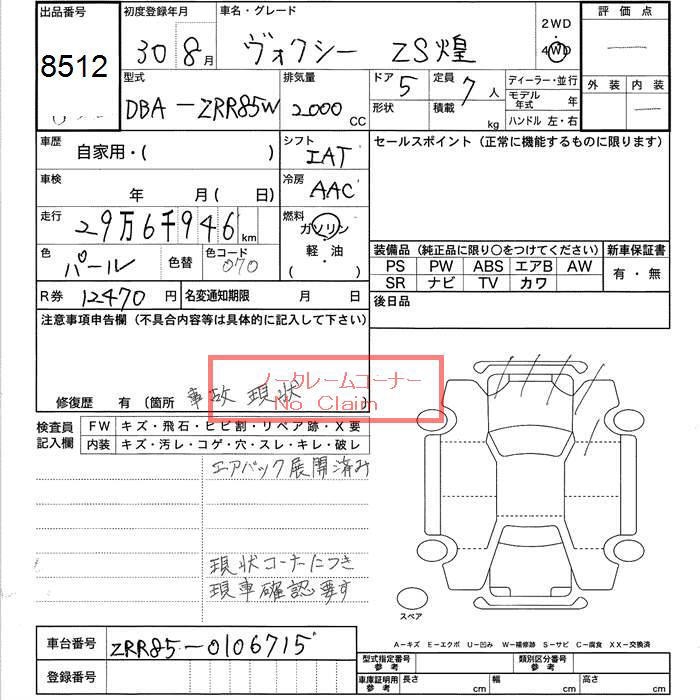 出品番号 初度登録年月 車名・グレード 2WD 評価点
8512 30 8月 ヴォクシー ZS煌 4WD
型式 排気量 ドア 5 定員 7人 ディーラー・並行 外装 内装
DBA-ZRR85W 2000CC 形状 積載 kg モデル年式 年
ハンドル 左・右
車歴 自家用・( ) シフト IAT セールスポイント(正常に機能するものに限ります)
車検 年 月( 日) 冷房 AAC
走行 29万6千946km 燃料 ガソリン
色 パール 色替 色コード 070 軽・油 ( ) 装備品(純正品に限り〇をつけてください) 新車保証書
PS PW ABS エアB AW 有・無
R券 12470円 名変通知期限 月 日 SR ナビ TV カワ
後日品
注意事項申告欄(不具合内容等は具体的に記入して下さい)
ノークレームコーナー
No Claim
修復歴 有(箇所 事故 現状 )
検査員記入欄 FW キズ・飛石・ヒビ割・リペア跡・X要
内装 キズ・汚レ・コゲ・穴・スレ・キレ・破レ
エアバック展開済み
現状コーナーにつき
現車確認要す
スペア
A-キズ E-エクボ U-凹み W-補修跡 S-サビ C-腐食 XX-交換済
車台番号 ZRR85-0106715
型式指定番号 参考 類別区分番号 参考
登録番号 車庫証明用 参考 長さ cm 幅 cm 高さ cm